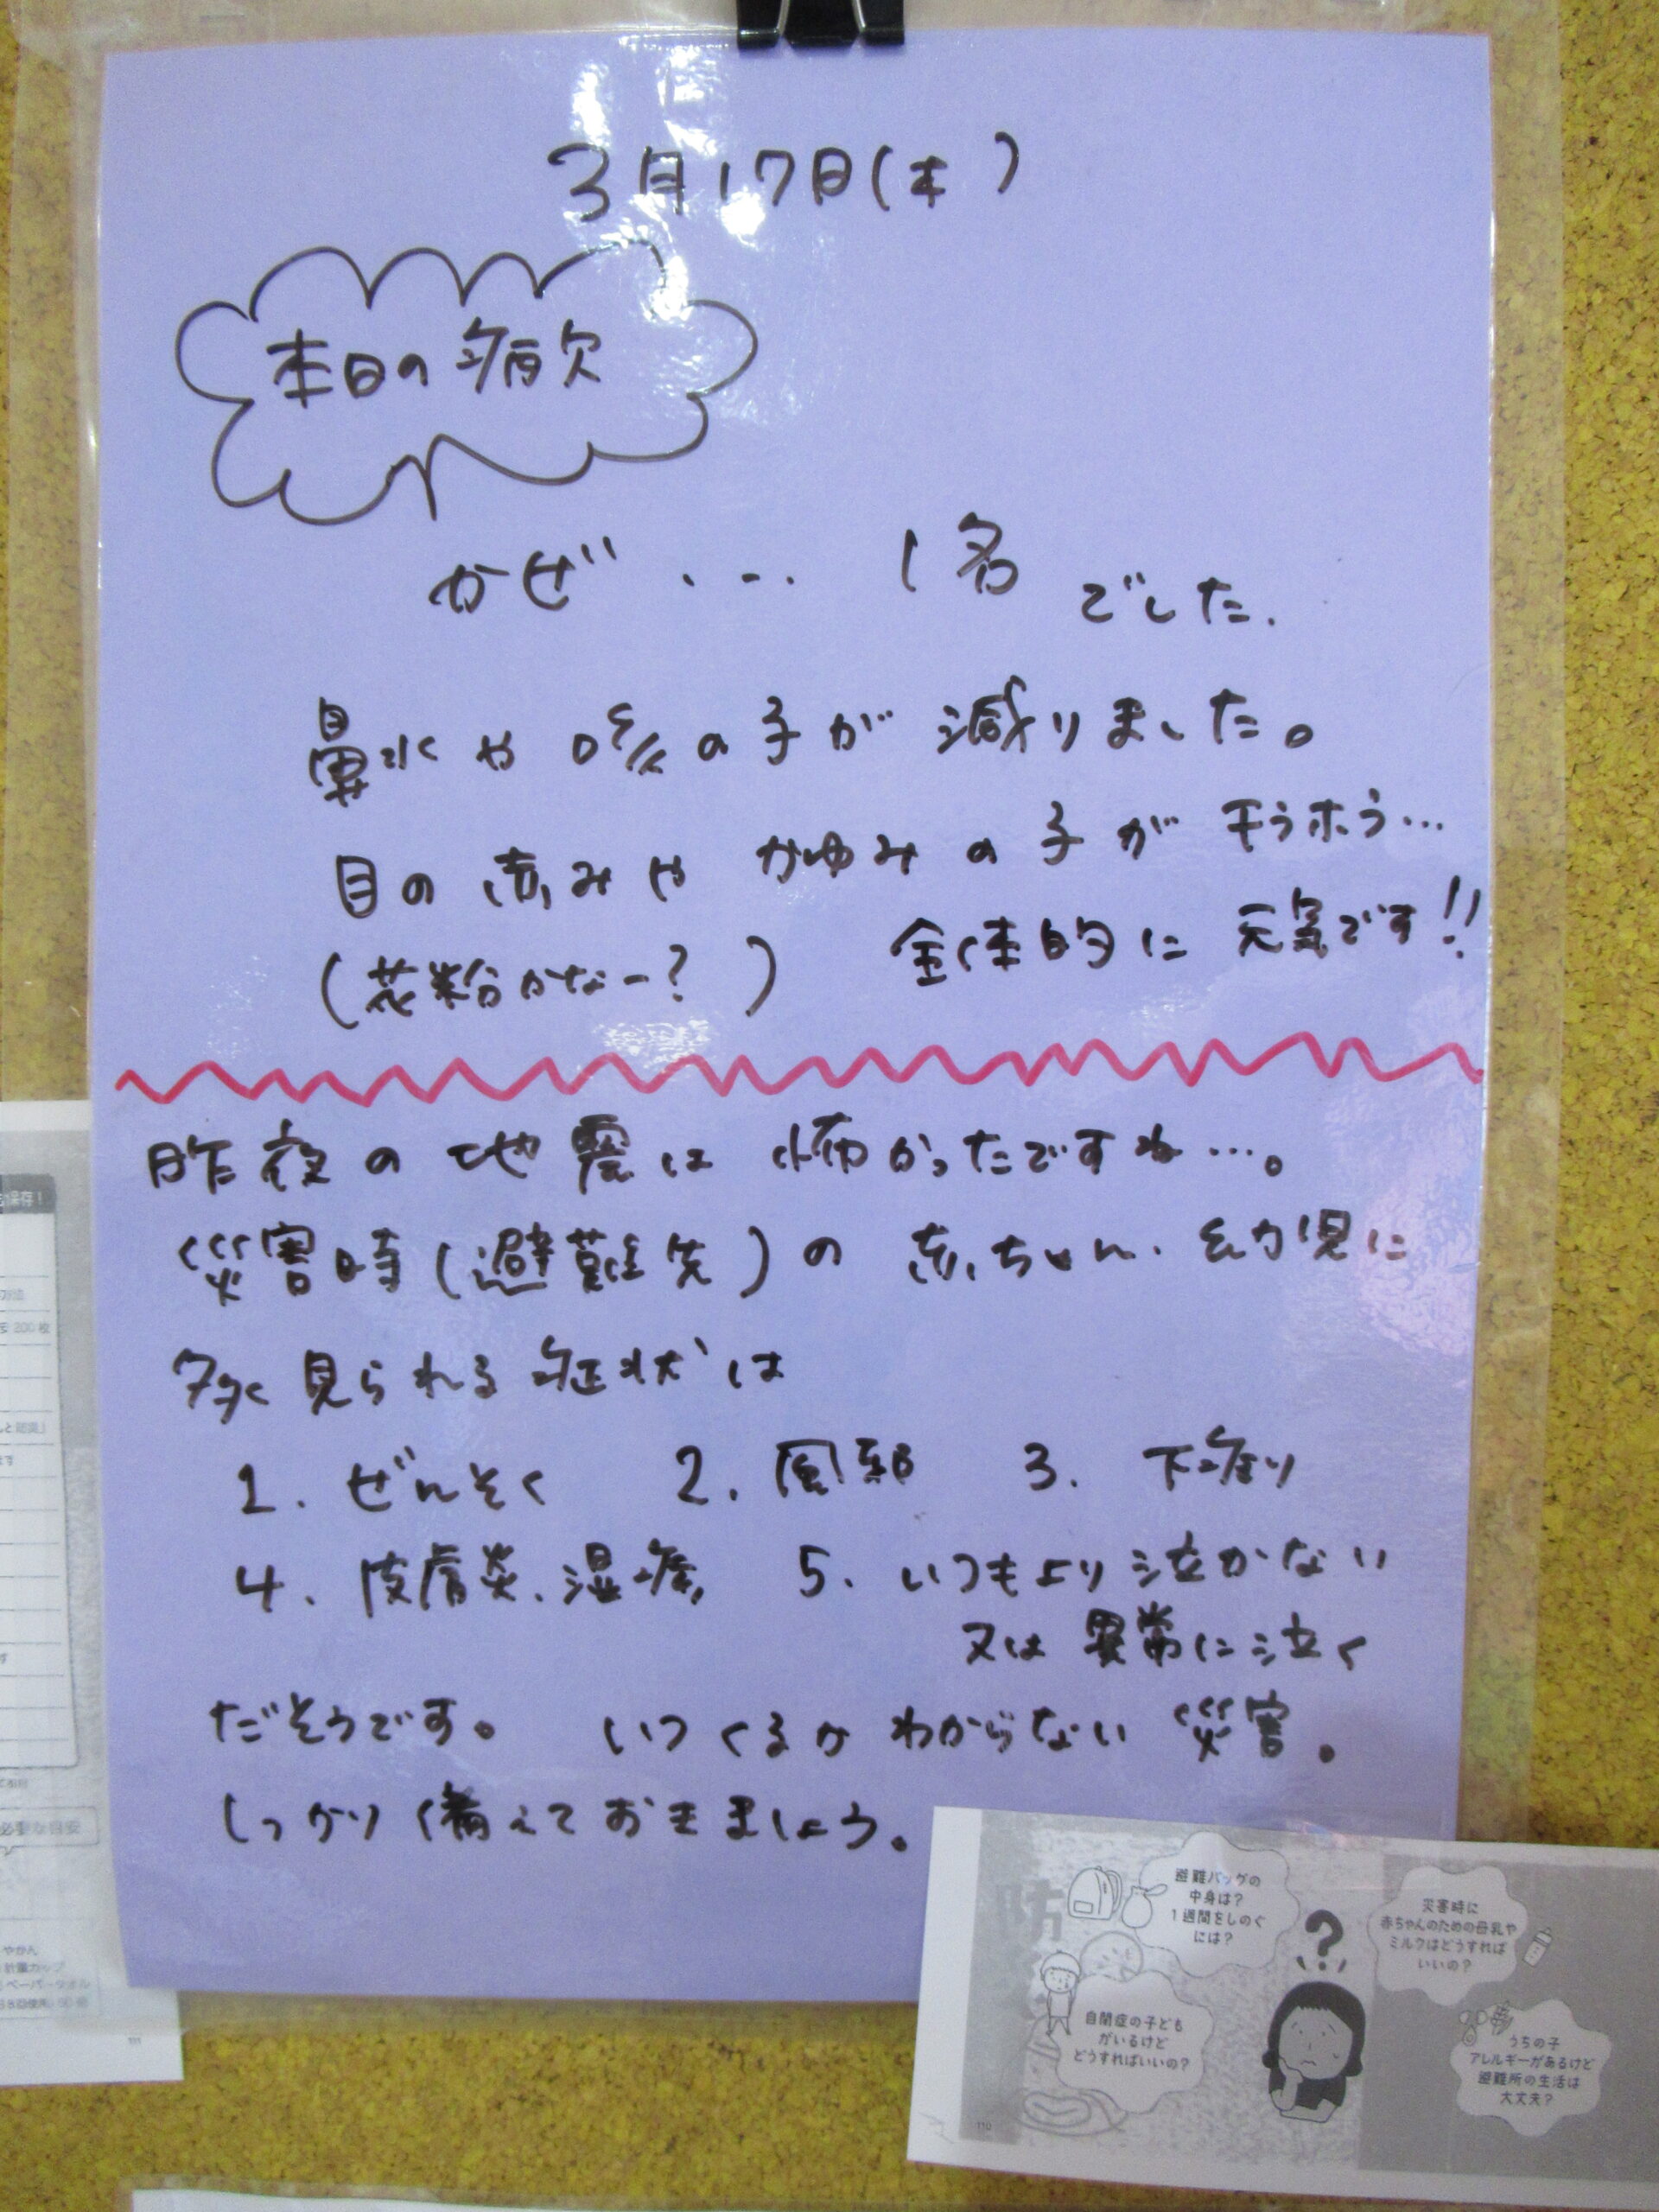 3月17日(木)
本日の病欠
かぜ ・・・ 1名 でした.
鼻水や咳の子が減りました。
目の赤みやかゆみの子がチラホラ…
(花粉かなー?) 全体的に元気です!!
昨夜の地震は怖かったですね…。
災害時(避難先)の赤ちゃん、幼児に
多く見られる症状は
1. ぜんそく 2. 風邪 3. 下痢
4. 皮膚炎、湿疹 5. いつもより泣かない
又は異常に泣く
だそうです。 いつくるかわからない災害。
しっかり備えておきましょう。
避難バッグの
中身は?
1週間をしのぐ
には?
災害時に
赤ちゃんのための母乳や
ミルクはどうすれば
いいの?
?
自閉症の子ども
がいるけど
どうすればいいの?
うちの子
アレルギーがあるけど
避難所の生活は
大丈夫?
防
110
保存!
200枚
必要な目安
やかん
計量カップ
ペーパータオル
111